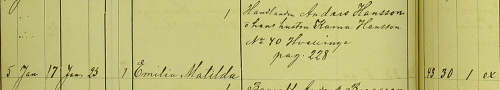 1 Handlanden Anders Hansson
o hans hustru Karna Hansson
No 40 Hvellinge
pag. 228
5 Jan 17 Jan. 23 1 Emilia Matilda 43 30 1 ex
1